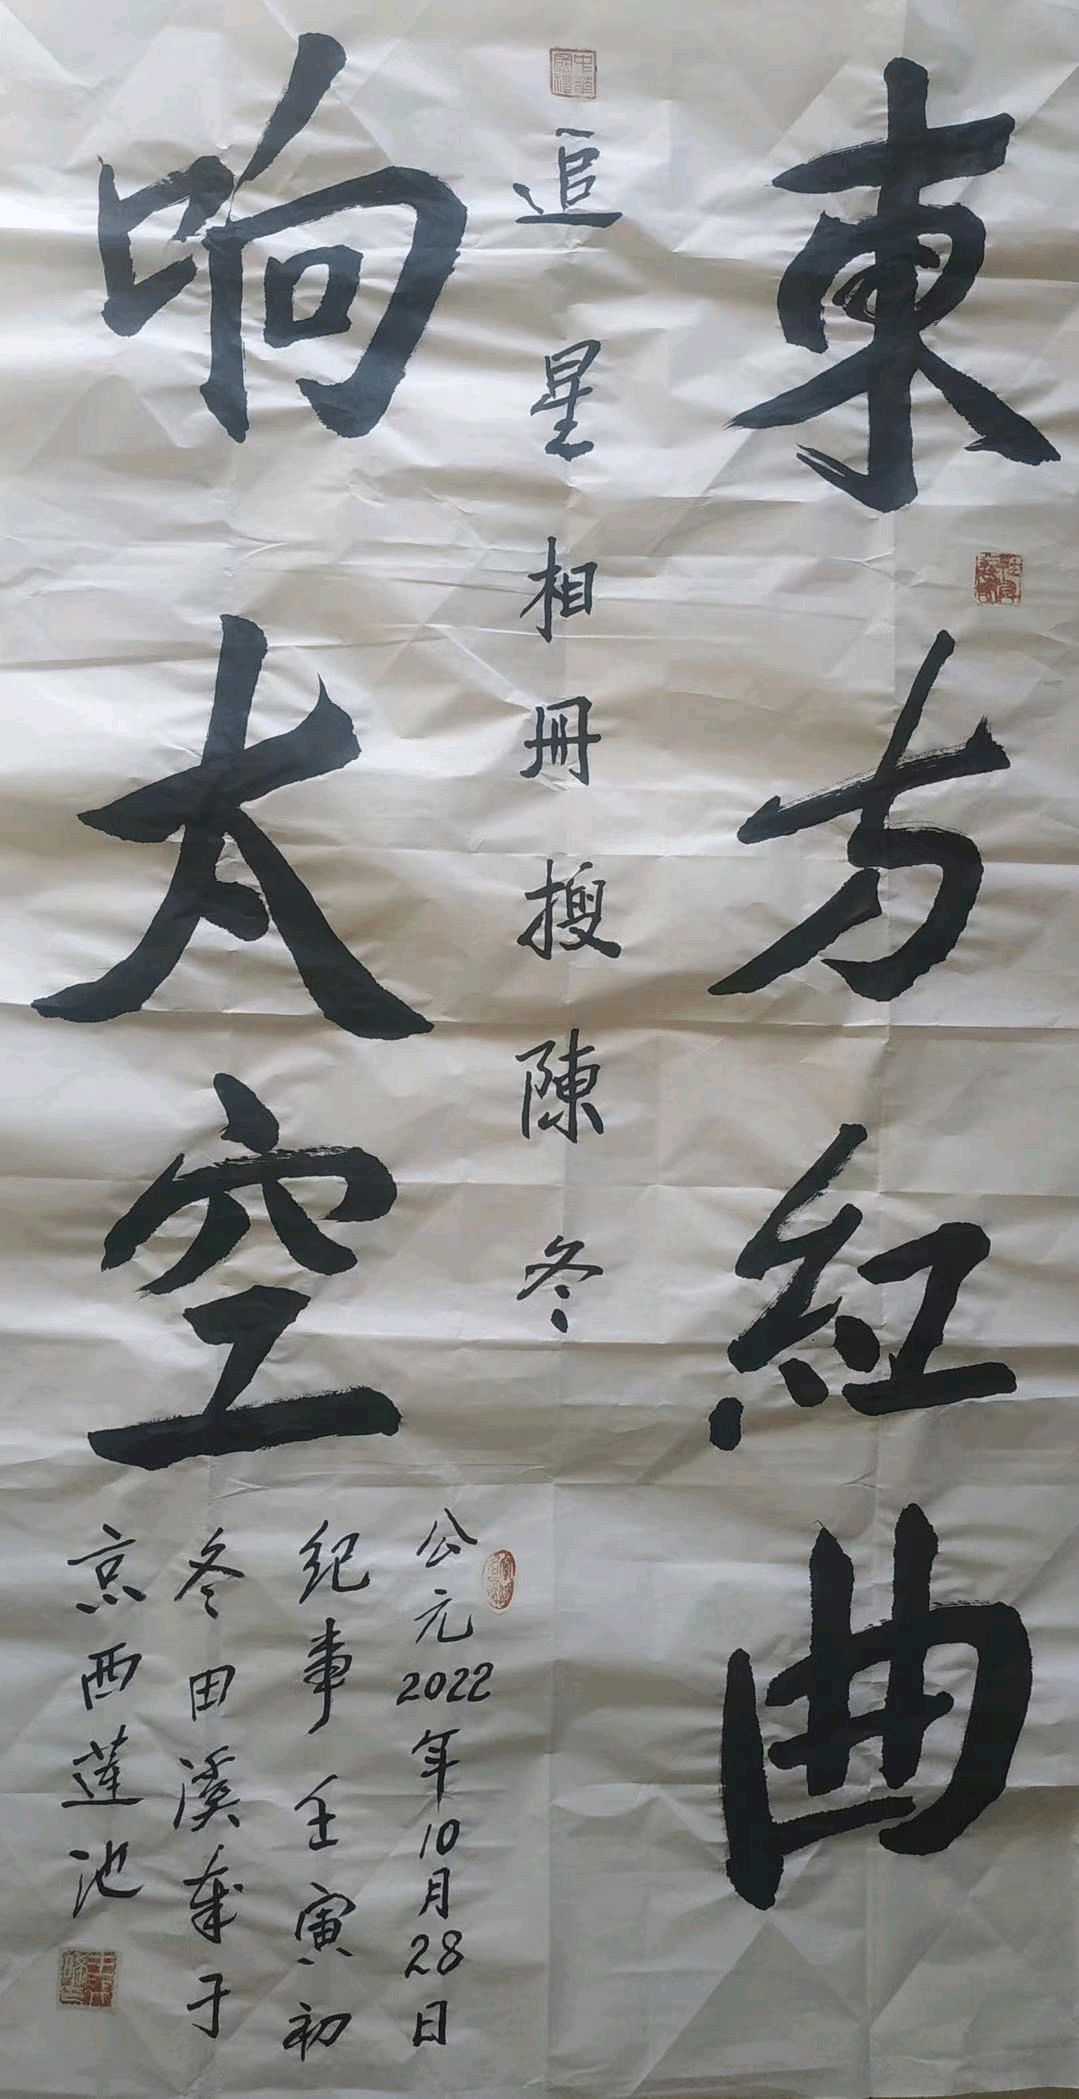 東方紅曲
追星相冊搜陳冬
响太空
公元2022年10月28日
纪事壬寅初
冬田溪奉于
京西莲池